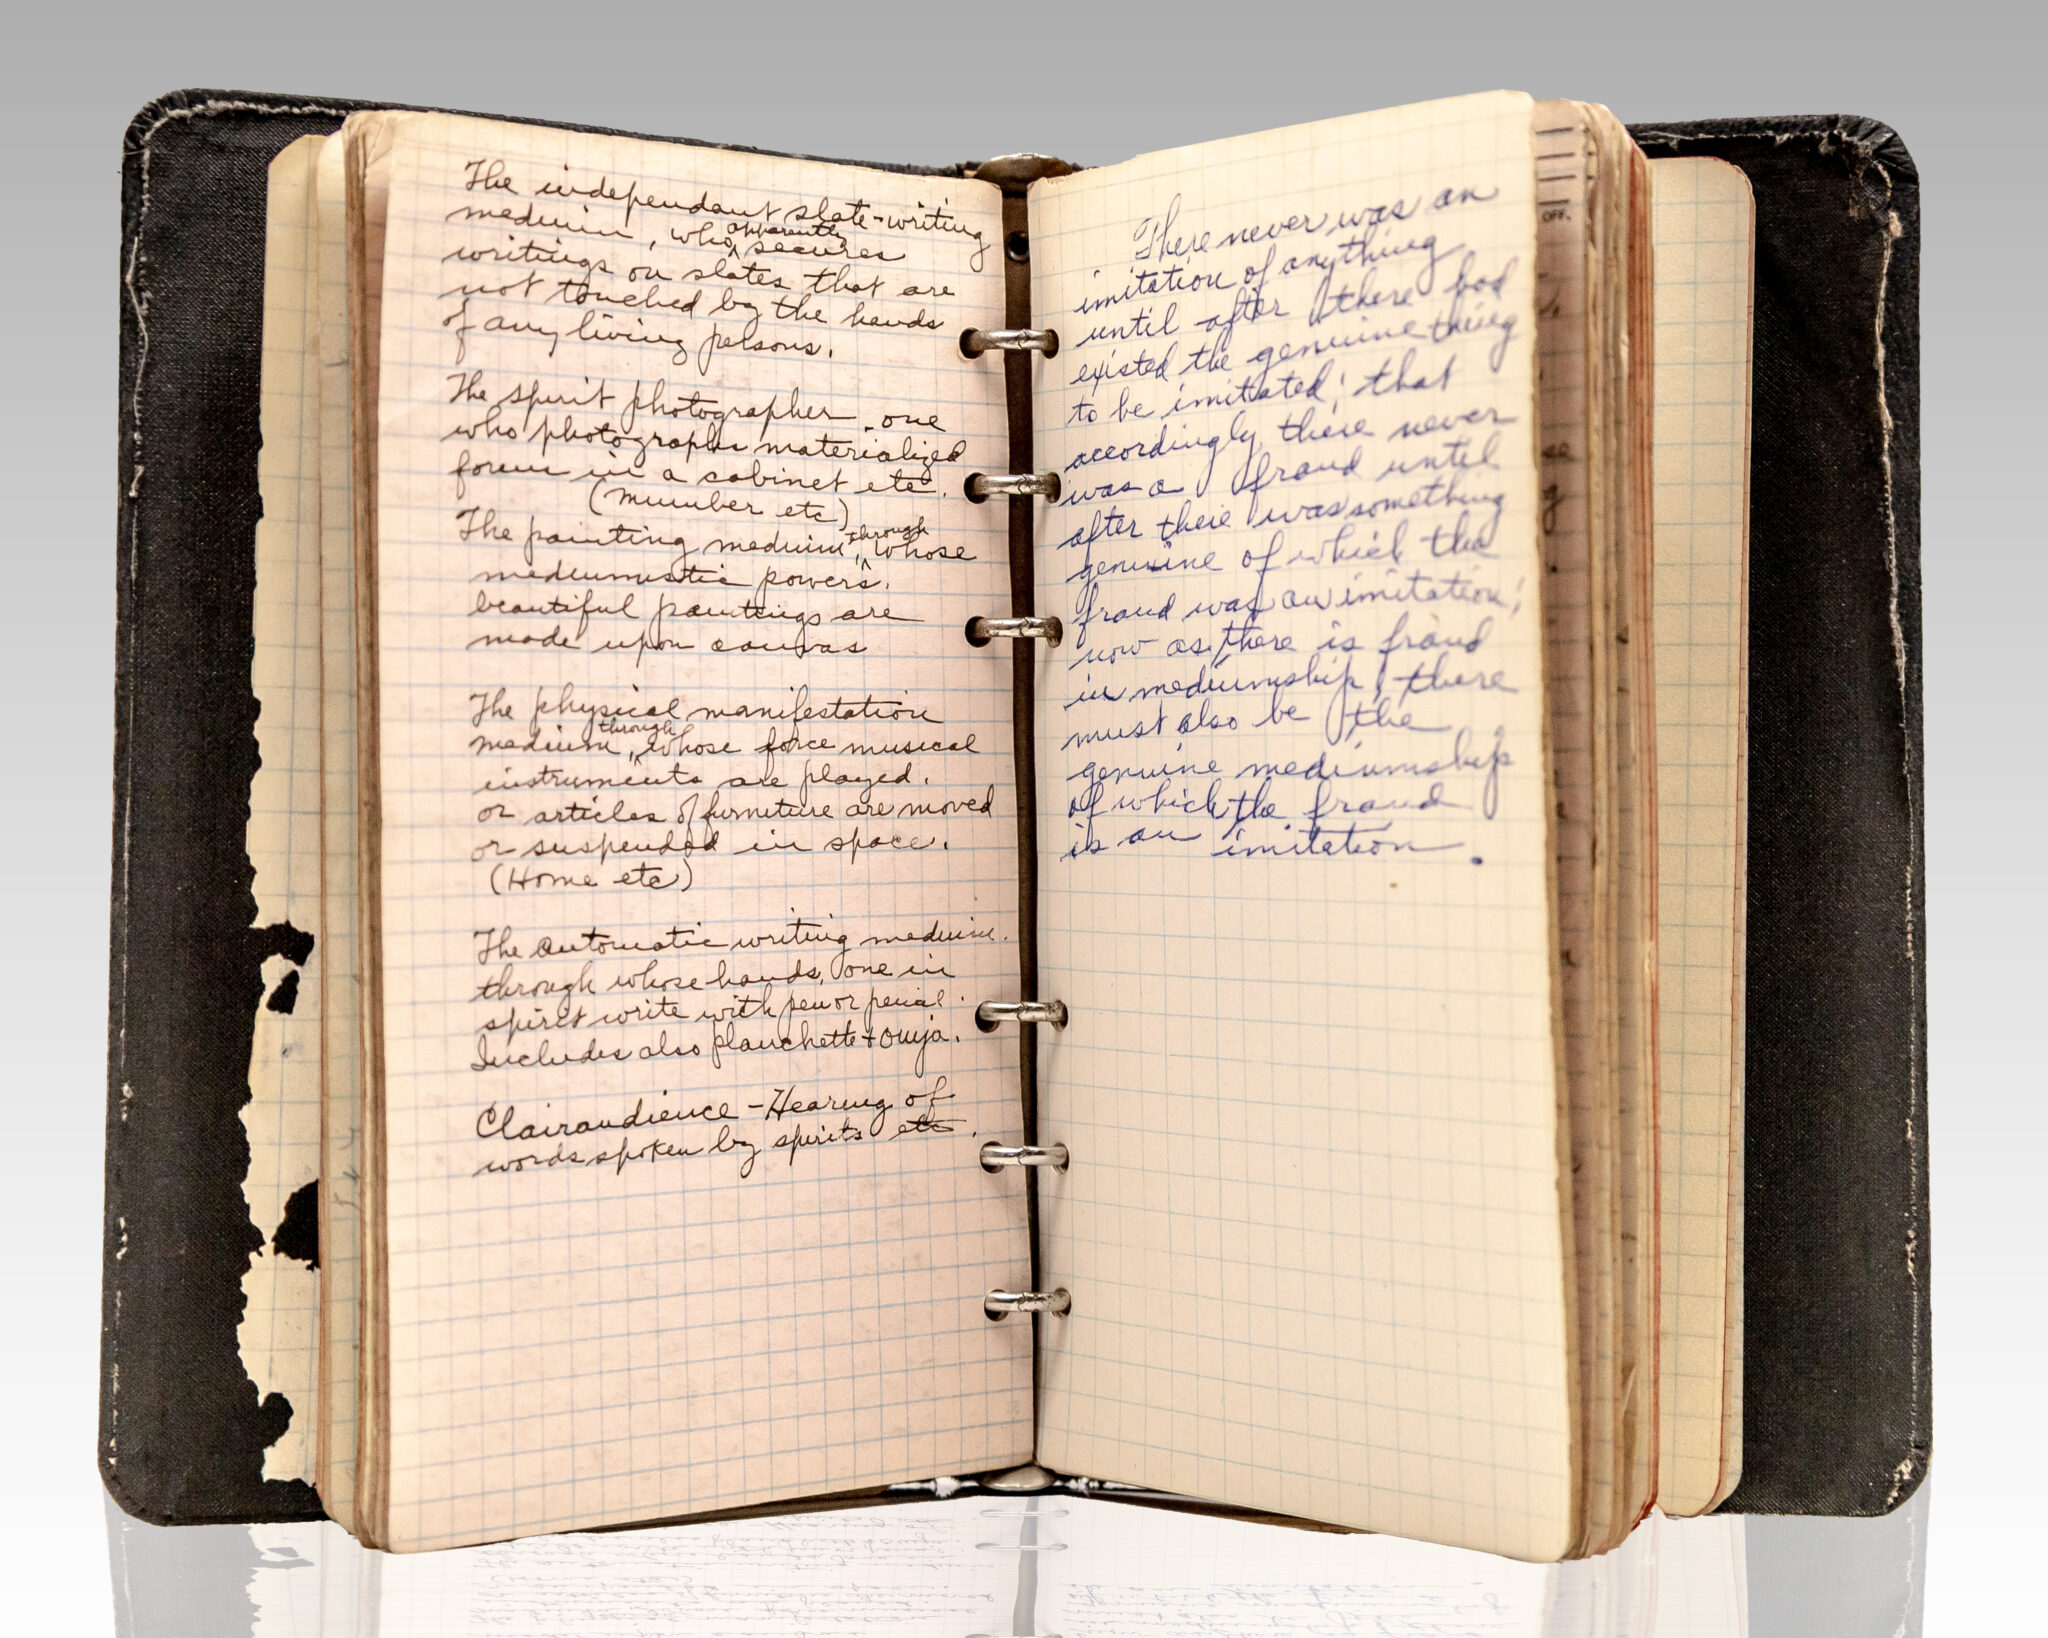 The independant slate-writing
medium, who apparently secures
writings on slates that are
not touched by the hands
of any living persons.
The spirit photographer - one
who photographs materialized
forms in a cabinet etc.
(Mumber etc)
The painting medium, through whose
mediumistic powers,
beautiful paintings are
made upon canvas
The physical manifestation
medium, through whose force musical
instruments are played.
or articles of furniture are moved
or suspended in space.
(Home etc)
The automatic writing medium.
through whose hands, one in
spirit write with pen or pencil.
Includes also planchette + Ouija.
Clairaudience - Hearing of
words spoken by spirits etc.
There never was an
imitation of anything
until after there had
existed the genuine thing
to be imitated; that
accordingly there never
was a fraud until
after there was something
genuine of which the
fraud was an imitation;
now as there is fraud
in mediumship, there
must also be the
genuine mediumship
of which the fraud
is an imitation.
OFF.